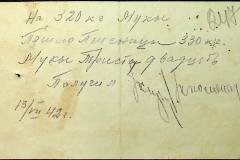 На 320 кг Муки
Пошло Пшеницы 330 кг.
Муки Триста двадцать
Получил
13/VII 42 г.